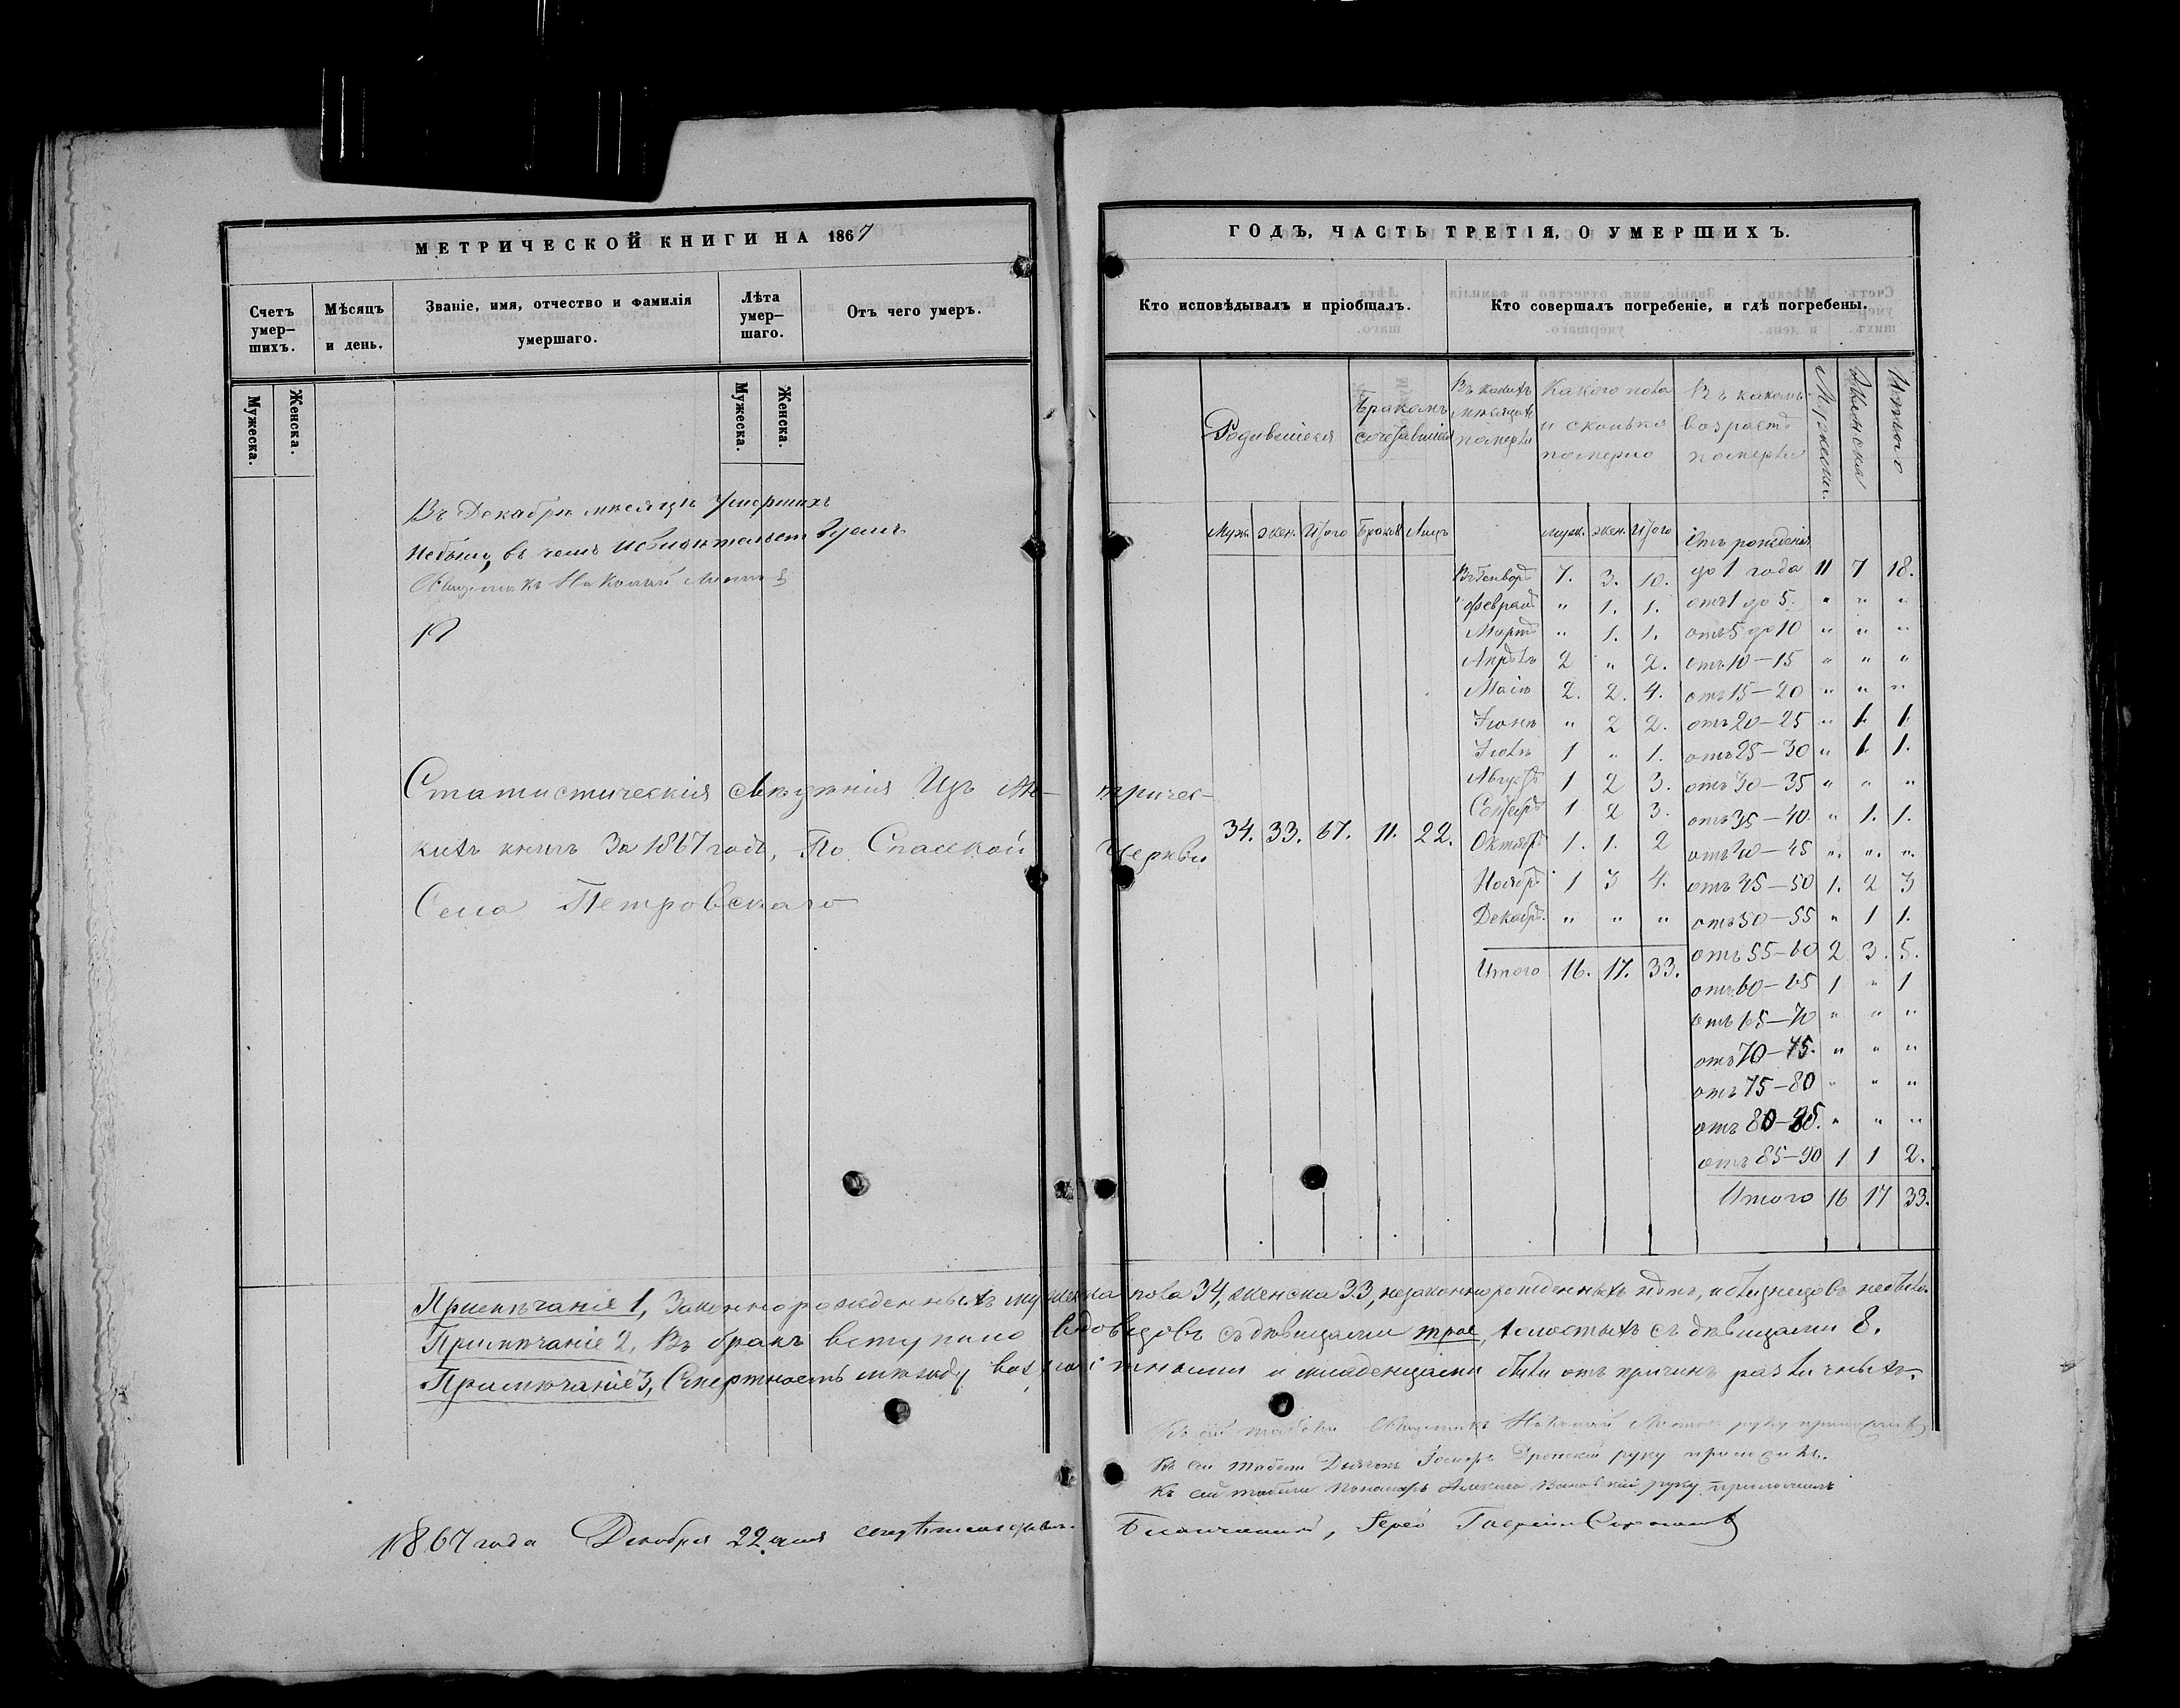 МЕТРИЧЕСКОЙ КНИГИ НА 1867
Счетъ умер–шихъ.
Мѣсяцъ и день.
Званіе, имя, отчество и фамилія умершаго.
Лѣта умер–шаго.
Отъ чего умеръ.
Мужеска. Женска. Мужеска. Женска.
Въ Декабрѣ мѣсяцѣ Умершихъ
Небыло, въ чемъ
Священникъ Николай
Статистическія свѣдѣнія Изъ Ме–
кихъ книгъ За 1867 годъ, По Спасской
Села Петровскаго
ГОДЪ, ЧАСТЬ ТРЕТІЯ, О УМЕРШИХЪ.
Кто исповѣдывалъ и пріобщалъ.
Кто совершалъ погребеніе, и гдѣ погребены.
тричес–
Церкви
Родившіеся
Бракомъ сочетавшіеся
Въ какихъ мѣсяцахъ померли
Какого пола и сколько померло
Въ какомъ возрастѣ померли
Мужеска Женска Итого
Муж. жен. Итого Браков Лицъ
муж. жен. Итого
34. 33. 67. 11. 22.
Въ Генварѣ 7. 3. 10.
Февралѣ " 1. 1.
Мартѣ " 1. 1.
Апрѣлѣ 2 " 2.
Маіѣ 2. 2. 4.
Іюнѣ " 2 2.
Іюлѣ 1 " 1.
Августѣ 1 2 3.
Сентябрѣ 1 2 3.
Октябрѣ 1. 1. 2
Ноябрѣ 1 3 4.
Декабрѣ " " "
Итого 16. 17. 33.
Отъ рожденія
до 1 года 11 7 18.
отъ 1 до 5. " " "
отъ 5 до 10 " " "
отъ 10–15 " " "
отъ 15–20 " " "
отъ 20–25 " 1. 1.
отъ 25–30 " 1. 1.
отъ 30–35 " " "
отъ 35–40. " 1. 1.
отъ 40–45 " " "
отъ 45–50 1. 2 3
отъ 50–55 " 1 1.
отъ 55–60 2 3. 5.
отъ 60–65 1 " 1
отъ 65–70 " " "
отъ 70–75. " " "
отъ 75–80 " " "
отъ 80–85. " " "
отъ 85–90 1 1 2.
Итого 16 17 33.
Примѣчаніе 1, Законнорожденныхъ мужеска пола 34, женска 33, незаконнорожденныхъ нѣтъ, и близнецовъ небыло.
Примѣчаніе 2, Въ бракъ вступило вдовцовъ съ дѣвицами трое, холостыхъ съ дѣвицами 8.
Примѣчаніе 3, Смертность между возрастными и младенцами была отъ причинъ различныхъ.
Къ сей табели Священникъ Николай руку приложилъ
Къ сей табели Дьячекъ руку приложилъ.
Къ сей табели Пономарь Алексѣй руку приложилъ
1867 года Декабря 22 дня свидѣтельствовалъ Благочинный, Іерей